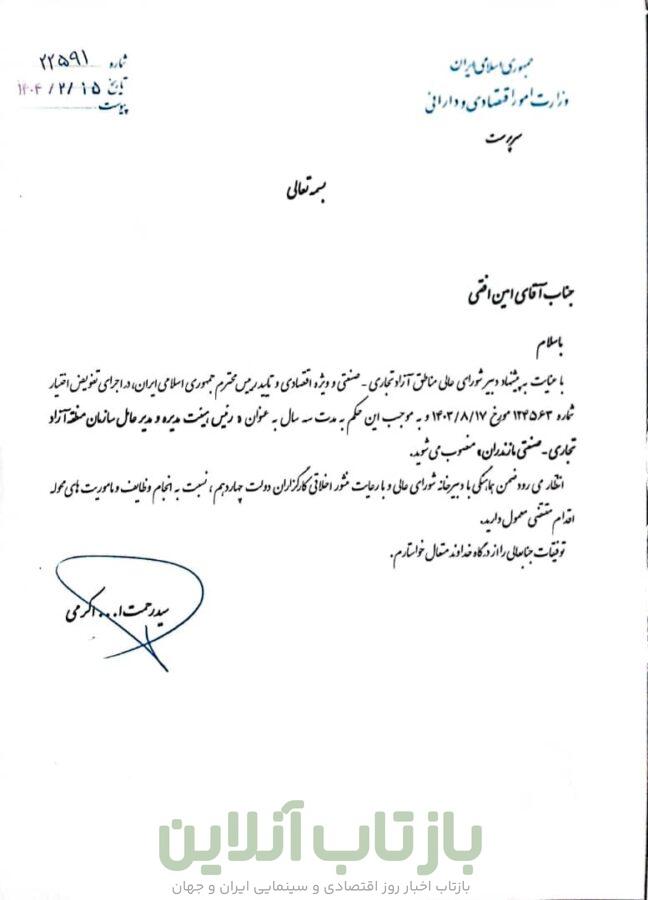 جمهوری اسلامی ایران
وزارت امور اقتصادی و دارائی
سرپرست
شماره ۲۲۵۹۱
تاریخ ۱۴۰۴/۲/۱۵
پیوست
بسمه تعالی
جناب آقای امین افقی
با سلام
با عنایت به پیشنهاد دبیر شورای عالی مناطق آزاد تجاری - صنعتی و ویژه اقتصادی و تایید رییس محترم جمهوری اسلامی ایران، در اجرای تفویض اختیار
شماره ۱۳۴۵۶۳ مورخ ۱۴۰۳/۸/۱۷ و به موجب این حکم به مدت سه سال به عنوان « رئیس هیئت مدیره و مدیر عامل سازمان منطقه آزاد
تجاری - صنعتی مازندران» منصوب می شوید.
انتظار می رود ضمن هماهنگی با دبیرخانه شورای عالی و با رعایت منشور اخلاقی کارگزاران دولت چهاردهم ، نسبت به انجام وظایف و ماموریت های محوله
اقدام مقتضی معمول دارید.
توفیقات جنابعالی را از درگاه خداوند متعال خواستارم.
سید رحمت ا... اکرمی
بازتاب آنلاین
بازتاب اخبار روز اقتصادی و سینمایی ایران و جهان